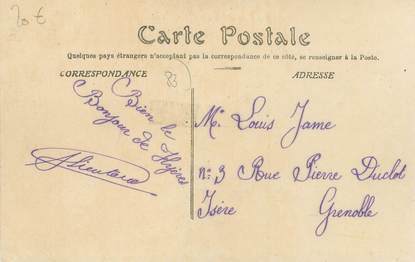 20 €
Carte Postale
Quelques pays étrangers n'acceptant pas la correspondance de ce côté, se renseigner à la Poste.
CORRESPONDANCE
83
ADRESSE
Bien le
Bonjour de Hyères
Mr Louis Jame
n: 3 Rue Pierre Duclot
Isère Grenoble